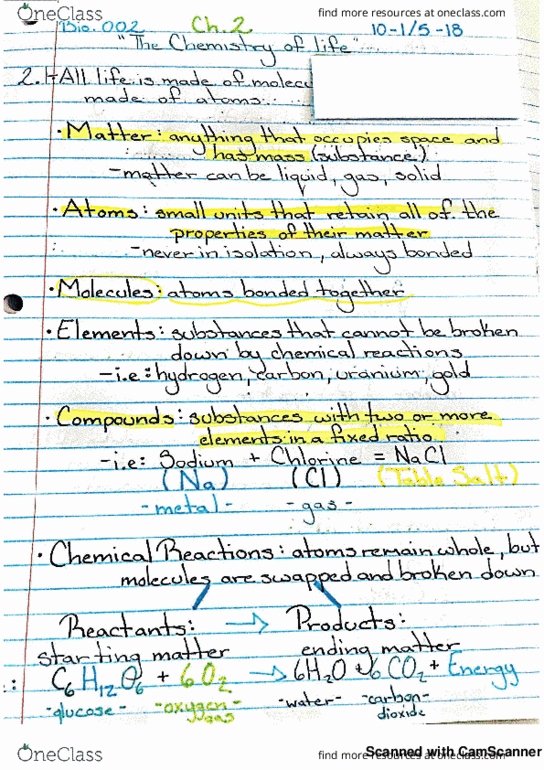 OneClass
find more resources at oneclass.com
Bio. 002 Ch.2 10-1/5-18
"The Chemistry of life"
2.1-All life is made of molec
made of atoms.
• Matter: anything that occupies space and
has mass (substance).
- matter can be liquid, gas, solid
• Atoms: small units that retain all of the
properties of their matter
- never in isolation, always bonded
• Molecules: atoms bonded together
• Elements: substances that cannot be broken
down by chemical reactions
- i.e: hydrogen, carbon, uranium, gold
• Compounds: substances with two or more
elements in a fixed ratio
- i.e: Sodium + Chlorine = NaCl
(Na) (Cl) (Table Salt)
- metal - - gas -
• Chemical Reactions: atoms remain whole, but
molecules are swapped and broken down
Reactants: → Products:
starting matter ending matter
C6 H12 O6 + 6O2 → 6H2O + 6 CO2 + Energy
- glucose - - oxygen - - water - - carbon -
gas dioxide
OneClass
find more resources at oneclass.com
Scanned with CamScanner